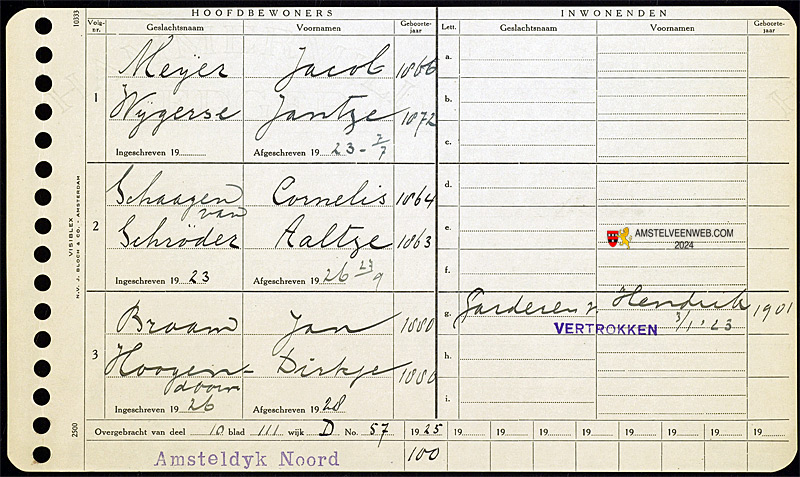 10333
HOOFDBEWONERS
INWONENDEN
Volg-nr. Geslachtsnaam Voornamen Geboorte-jaar Lett. Geslachtsnaam Voornamen Geboorte-jaar
Meijer Jacob 1866 a.
1
Wijgerse Jantje 1872 b.
c.
Ingeschreven 19 Afgeschreven 19 23 - 7/7
Schaagen van Cornelis 1864 d.
2
Schröder Aaltje 1863 e.
AMSTELVEENWEB.COM
2024
f.
Ingeschreven 19 23 Afgeschreven 19 26 23/9
Braam Jan 1880 g. Garderen v. Hendrik 1901
VERTROKKEN 3/1 '23
3
Hoogen-doorn Dirkje 1880 h.
i.
Ingeschreven 19 26 Afgeschreven 19 28
Overgebracht van deel 10 blad 111 wijk D No. 57 1925 19 19 19 19 19 19 19 19
Amsteldyk Noord 100
VISIBLEX
N.V. J. BLOCH & CO. - AMSTERDAM
2500